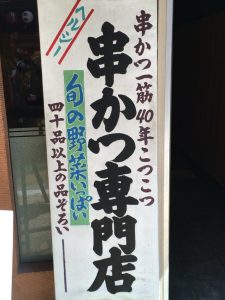 串かつ一筋40年こつこつ
串かつ専門店
フルーツ
旬の野菜いっぱい
四十品以上の品ぞろい